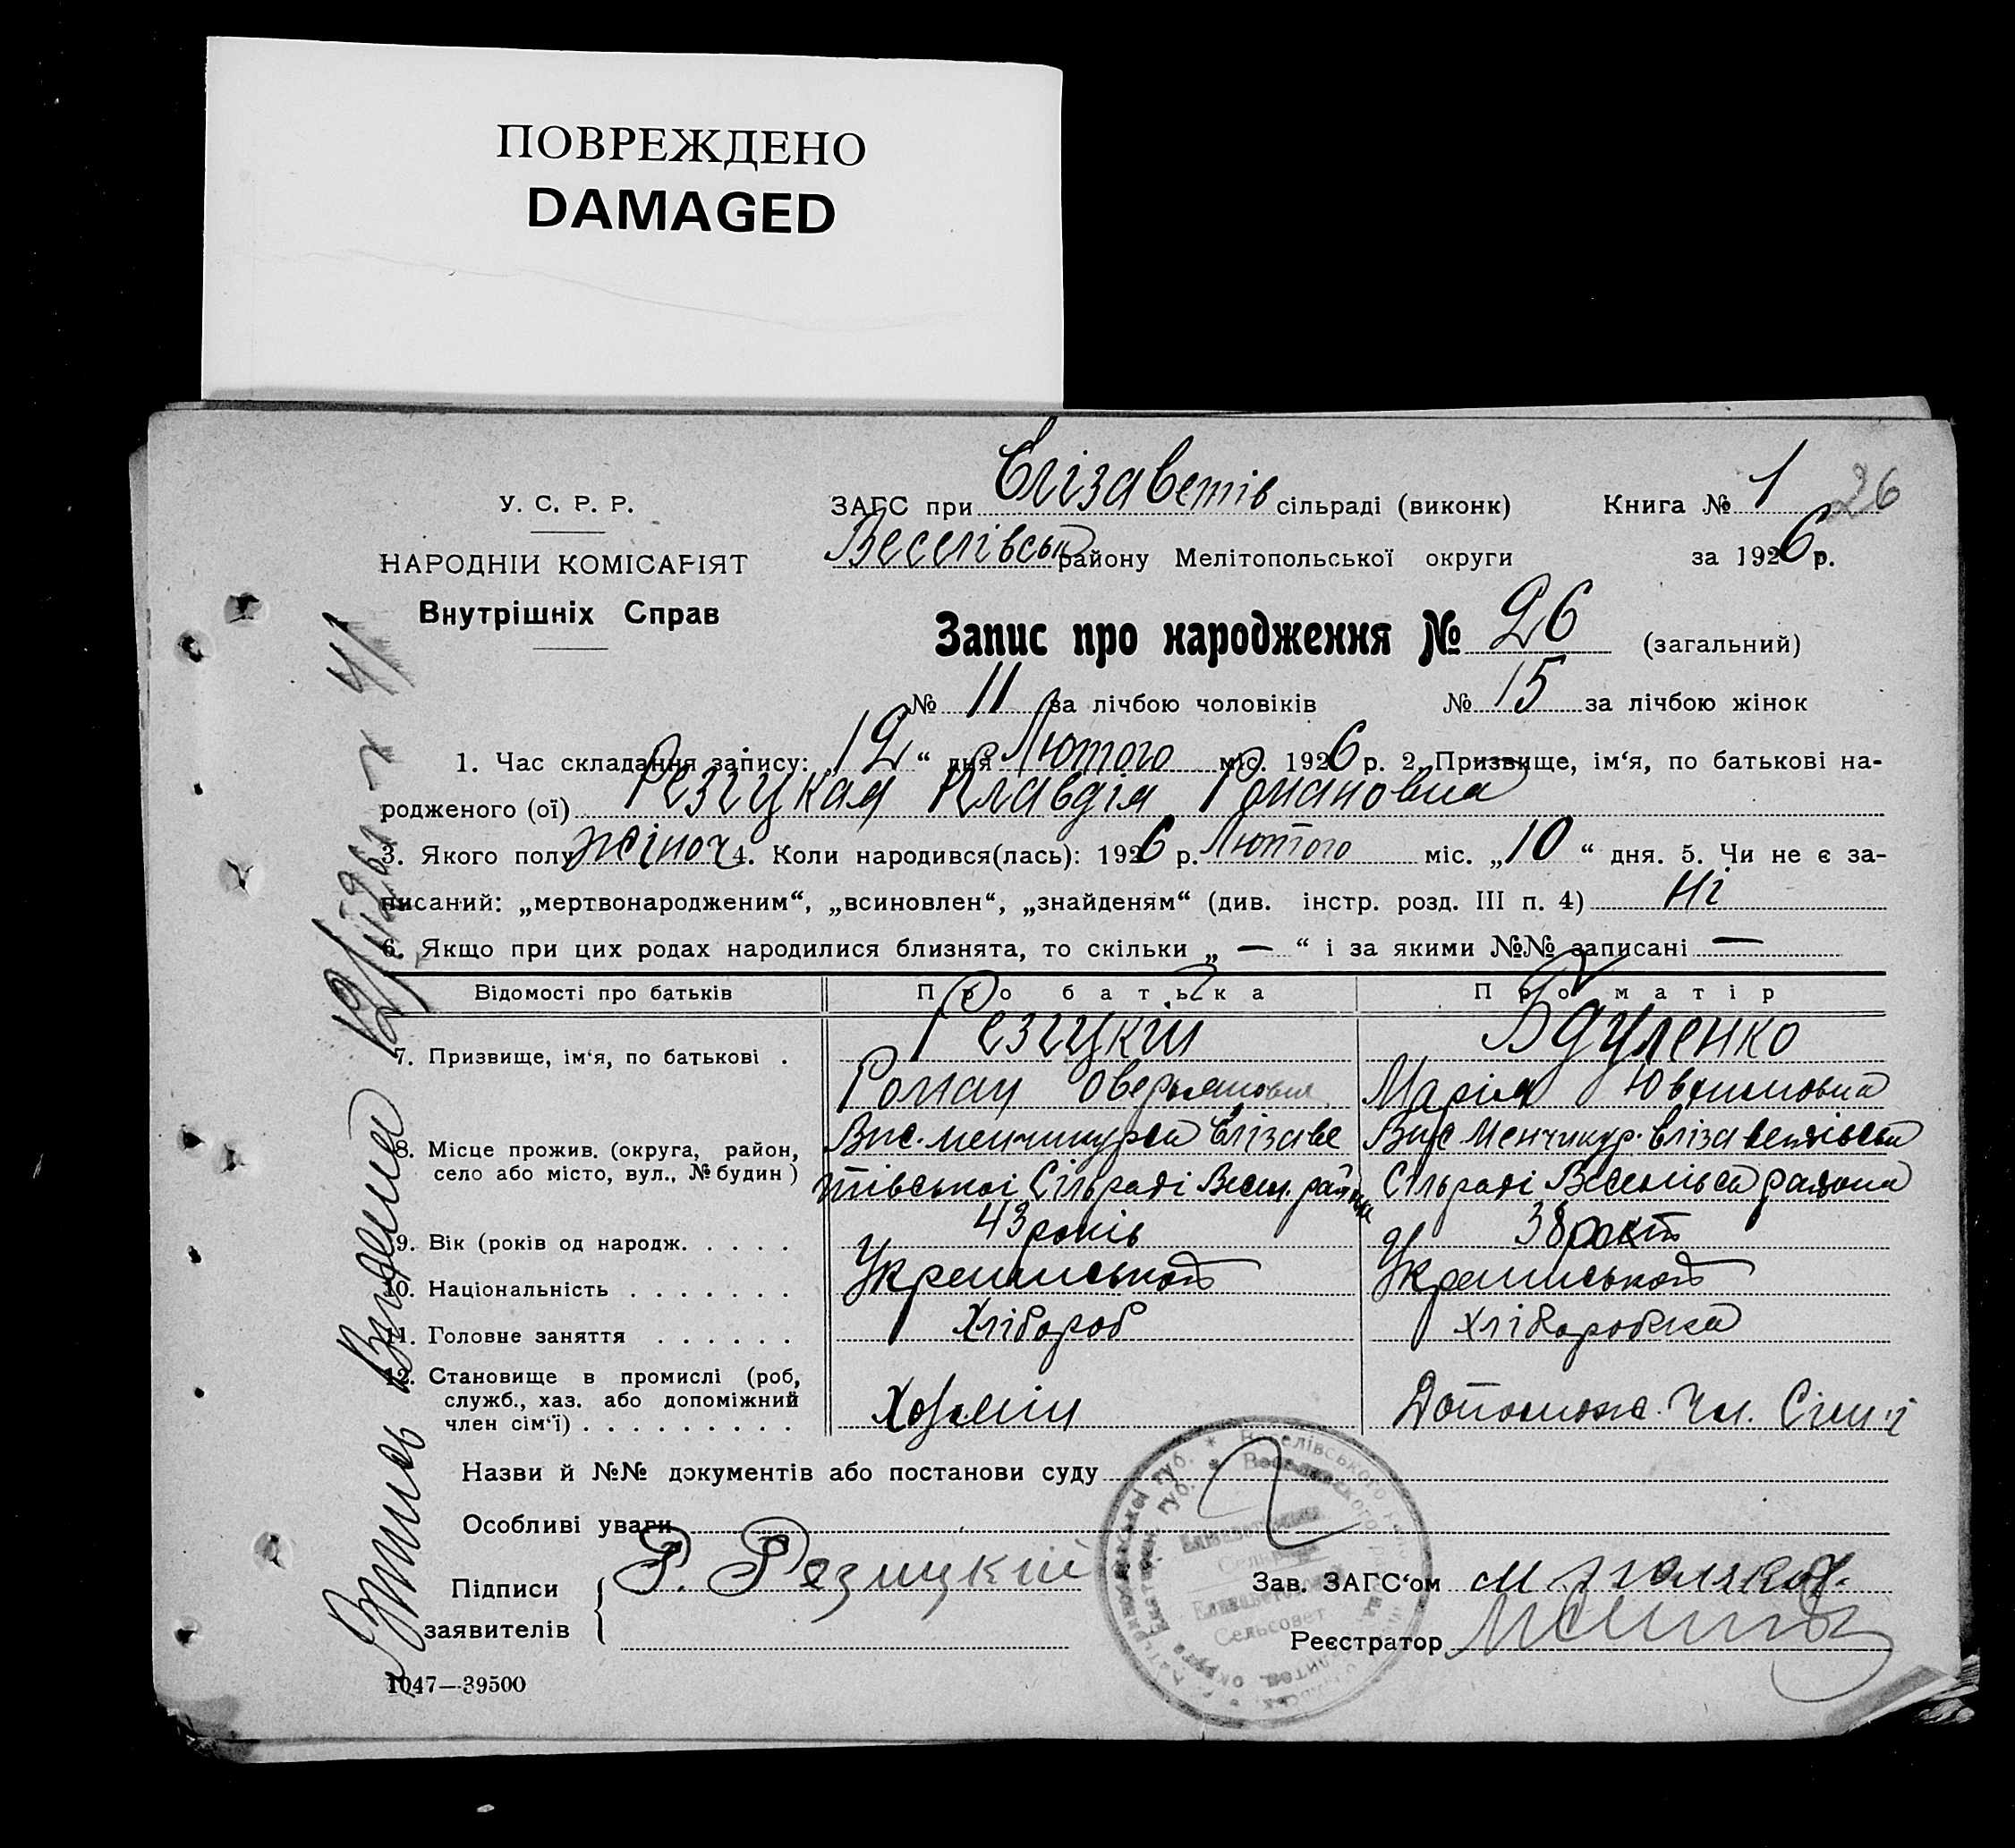 ПОВРЕЖДЕНО
DAMAGED
У. С. Р. Р.
НАРОДНІЙ КОМІСАРІЯТ
Внутрішніх Справ
ЗАГС при Єлізаветів сільраді (виконк) Книга № 1 26
Веселівськ району Мелітопольської округи за 1926 р.
Запис про народження № 26 (загальний)
№ 11 за лічбою чоловіків № 15 за лічбою жінок
1. Час складання запису: 12 “ дня Лютого міс. 1926 р. 2. Призвище, ім‘я, по батькові на-
родженого (ої) Резіцкая Клавдія Романовна
3. Якого полу жіноч 4. Коли народився(лась): 1926 р. Лютого міс. „10 “ дня. 5. Чи не є за-
писаний: „мертвонародженим“, „всиновлен“, „знайденям“ (див. інстр. розд. III п. 4) Ні
6. Якщо при цих родах народилися близнята, то скільки „ — “ і за якими №№ записані —
Відомості про батьків Про батька Про матір
7. Призвище, ім‘я, по батькові . Резіцкій
Роман Марія
8. Місце прожив. (округа, район, село або місто, вул., № будин) Вис. Менчикурса Єлізаве Вис Менчикур. Єлізаветівськ
тівськоі Сільраді Весел. району Сільраді Веселівськ района
9. Вік (років од народж. . . . . 43 років 38 рокі
10. Національність . . . . . . .
11. Головне заняття . . . . . . Хлібороб Хліборобка
12. Становище в промислі (роб, служб., хаз. або допоміжний член сім‘ї) . . . . . . . . . Хозяин Допомож. Чл. Сімі
Назви й №№ документів або постанови суду
Особливі уваги
Підписи заявителів Р. Резицкий
Зав. ЗАГС‘ом
Реєстратор
1047—39500